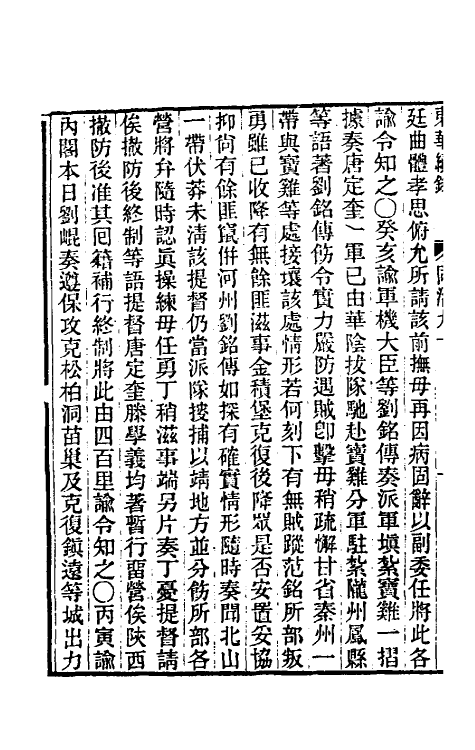 東華續錄 同治九十
廷曲體孝思俯允所請該前撫毋再因病固辭以副委任將此各
諭令知之〇癸亥諭軍機大臣等劉銘傳奏派軍填紮寶雞一摺
據奏唐定奎一軍已由華陰拔隊馳赴寶雞分軍駐紮隴州鳳縣
等語著劉銘傳飭令實力嚴防遇賊卽擊毋稍疏懈甘省秦州一
帶與寶雞等處接壤該處情形若何刻下有無賊蹤范銘所部叛
勇雖已收降有無餘匪滋事金積堡克復後降眾是否安置妥協
抑尙有餘匪竄倂河州劉銘傳如探有確實情形隨時奏聞北山
一帶伏莽未淸該提督仍當派隊搜捕以靖地方並分飭所部各
營將弁隨時認眞操練毋任勇丁稍滋事端另片奏丁憂提督請
俟撤防後終制等語提督唐定奎滕學義均著暫行畱營俟陝西
撤防後准其囘籍補行終制將此由四百里諭令知之〇丙寅諭
內閣本日劉崐奏遵保攻克松柏洞苗巢及克復鎭遠等城出力